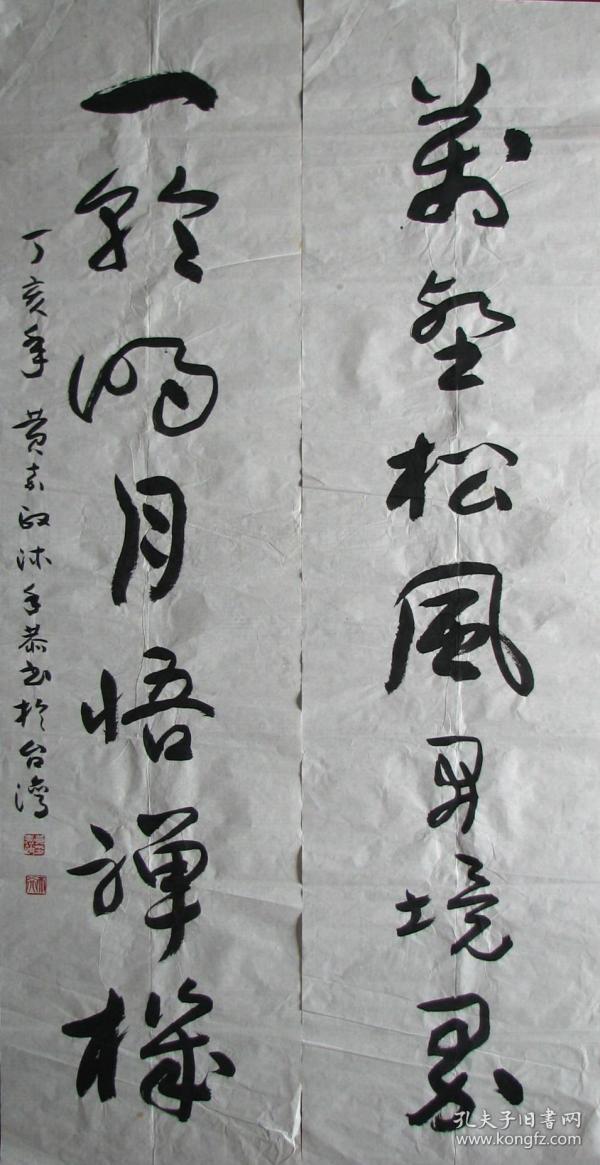 萬壑松風開境界
一輪明月悟禪機
丁亥年 黄政沐手恭書於台灣
孔夫子旧書网
www.kongfz.com